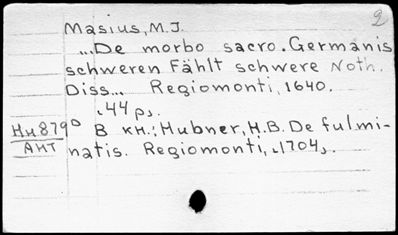 2
Masius, M.J.
„...De morbo sacro. Germanis
schweren Fählt schwere Noth.
Diss... Regiomonti, 1640.
44 p.
Нн879° В кн.: Hubner, H.B. De fulmi-
АНТ natis. Regiomonti, 1704.